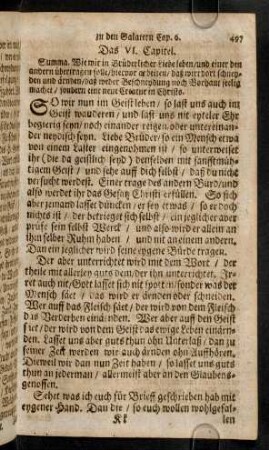 zu den Galatern Cap. 6. 497
Das VI. Capitel.
Summa. Wie wir in Brüderlicher Liebe leben / und einer den
andern übertragen solle /
machet / sondern eine neue Creatur in Christo.
SO wir nun im Geist leben / so last uns auch im
Geist wanderen / und last uns nit eyteler Ehr
begierig seyn / noch einander reitzen oder untereinan-
der neydisch seyn. Liebe Brüder / so ein Mensch etwa
von einem Laster eingenommen ist / so unterweiset
ihr (die da geistlich seyd) denselben mit sanfftmüh-
tigem Geist / und sehe auff dich selbst / daß du nicht
versucht werdest. Einer trage des andern Bürd / und
also werdet ihr das Gesatz Christi erfüllen. So sich
aber jemand lasset düncken er sey etwas / so er doch
nichts ist / der betrieget sich selbst / ein jeglicher aber
prüfe sein selbst Werck / und also wird er allein an
ihm selber Ruhm haben / und nit an einem andern.
Dan ein jeglicher wird seine eygene Bürde tragen.
Der aber unterrichtet wird mit dem Wort / der
theile mit allerley guts dem / der ihn unterrichtet. Ir-
ret auch nit / Gott lasset sich nit spotten / sonder was der
Mensch säet / das wird er ärnden oder schneiden.
Wer auff das Fleisch säet / der wird von dem Fleisch
das Verderben einärnden. Wer aber auff den Geist
säet / der wird von dem Geist das ewige Leben einärn-
den. Lasset uns aber guts thun ohn Unterlaß / dan zu
seiner Zeit werden wir auch ärnden ohn Auffhören.
Dieweil wir dan nun Zeit haben / so lasset uns guts
thun an jederman / allermeist aber an den Glaubens-
genossen.
Sehet was ich euch für Brieff geschrieben hab mit
eygener Hand. Dan die / so euch wollen wohlgefal-
Kk len